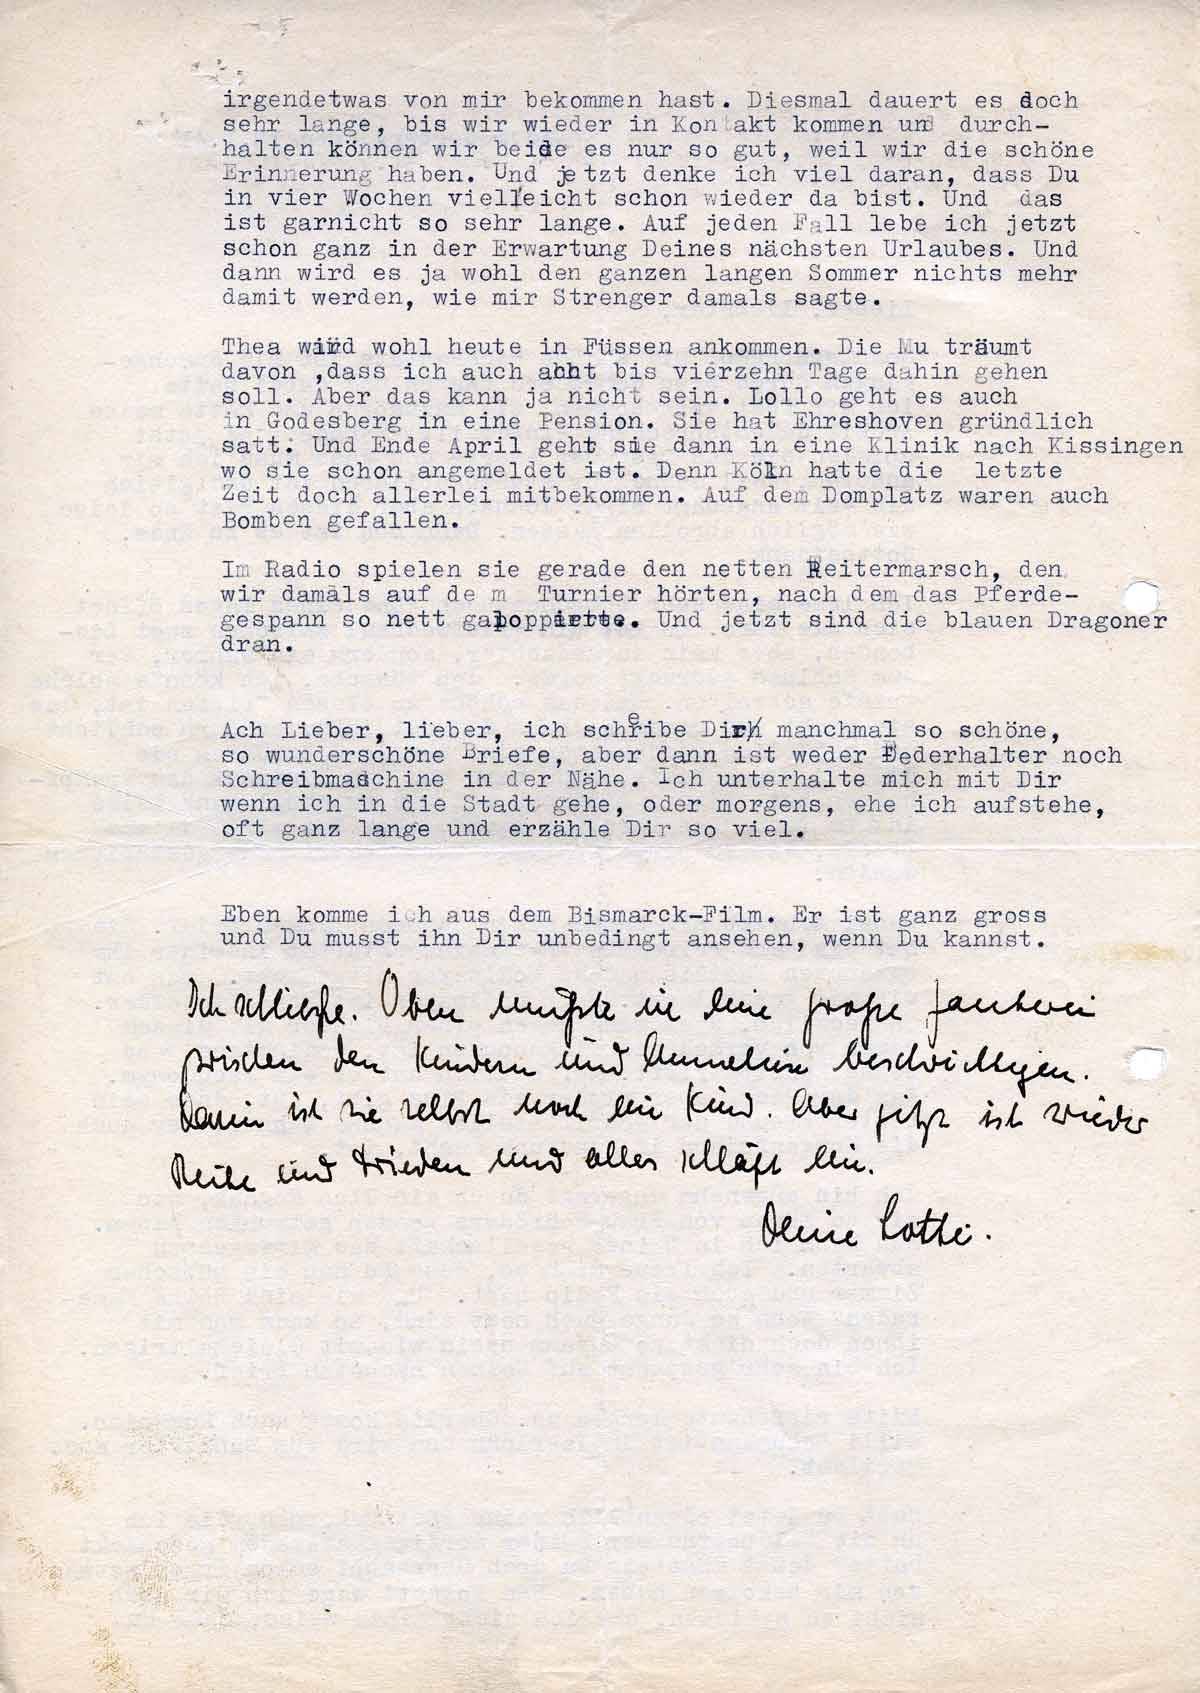 irgendetwas von mir bekommen hast. Diesmal dauert es doch
sehr lange, bis wir wieder in Kontakt kommen und durch-
halten können wir beide es nur so gut, weil wir die schöne
Erinnerung haben. Und jetzt denke ich viel daran, dass Du
in vier Wochen vielleicht schon wieder da bist. Und das
ist garnicht so sehr lange. Auf jeden Fall lebe ich jetzt
schon ganz in der Erwartung Deines nächsten Urlaubes. Und
dann wird es ja wohl den ganzen langen Sommer nichts mehr
damit werden, wie mir Strenger damals sagte.
Thea wird wohl heute in Füssen ankommen. Die Mu träumt
davon ,dass ich auch acht bis vierzehn Tage dahin gehen
soll. Aber das kann ja nicht sein. Lollo geht es auch
in Godesberg in eine Pension. Sie hat Ehreshoven gründlich
satt. Und Ende April geht sie dann in eine Klinik nach Kissingen
wo sie schon angemeldet ist. Denn Köln hatte die letzte
Zeit doch allerlei mitbekommen. Auf dem Domplatz waren auch
Bomben gefallen.
Im Radio spielen sie gerade den netten Reitermarsch, den
wir damals auf de m Turnier hörten, nach dem das Pferde-
gespann so nett galoppierte. Und jetzt sind die blauen Dragoner
dran.
Ach Lieber, lieber, ich schreibe Dir manchmal so schöne,
so wunderschöne Briefe, aber dann ist weder Federhalter noch
Schreibmaschine in der Nähe. Ich unterhalte mich mit Dir
wenn ich in die Stadt gehe, oder morgens, ehe ich aufstehe,
oft ganz lange und erzähle Dir so viel.
Eben komme ich aus dem Bismarck-Film. Er ist ganz gross
und Du musst ihn Dir unbedingt ansehen, wenn Du kannst.
Ich schließe. Oben mußte ich eine große Zankerei
zwischen den Kindern und Anneliese beschwichtigen.
Dann ist sie selbst noch ein Kind. Aber jetzt ist wieder
Ruhe und Frieden und alles schläft ein.
Deine Lotte.